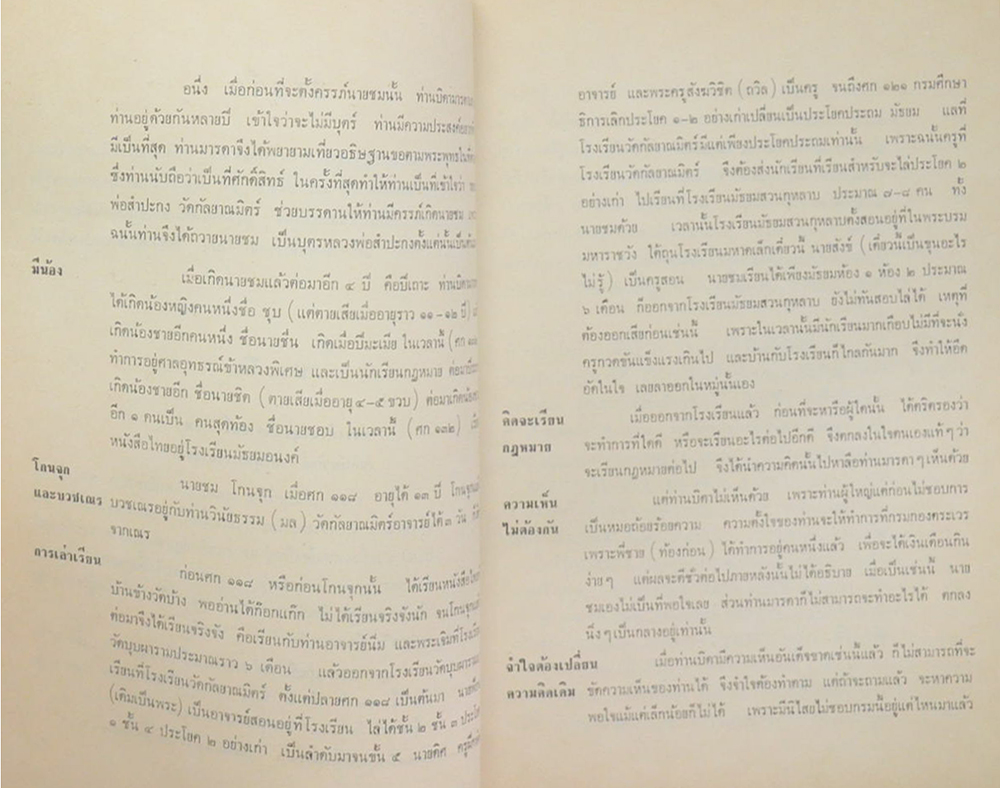 อนึ่ง เมื่อก่อนที่จะตั้งครรภ์นายชมนั้น ท่านบิดามารดา
ท่านอยู่ด้วยกันหลายปี เข้าใจว่าจะไม่มีบุตร์ ท่านมีความประสงค์
มีเป็นที่สุด ท่านมารดาจึงได้พยายามเที่ยวอธิษฐานขอตามพระพุทธ
ซึ่งท่านนับถือว่าเป็นที่ศักดิ์สิทธิ์ ในครั้งที่สุดทำให้ท่านเป็นที่เข้าใจว่า
พ่อสำปะกง วัดกัลยาณมิตร์ ช่วยบรรดานให้ท่านมีครรภ์เกิดนายชม
ฉนั้นท่านจึงได้ถวายนายชม เป็นบุตรหลวงพ่อสำปะกงตั้งแต่นั้นเป็นต้น
มีน้อง
เมื่อเกิดนายชมแล้วต่อมาอีก ๔ ปี คือปีเถาะ ท่านบิดา
ได้เกิดน้องหญิงคนหนึ่งชื่อ ชุบ (แต่ตายเสียเมื่ออายุราว ๑๑-๑๒ ปี)
เกิดน้องชายอีกคนหนึ่ง ชื่อนายชื่น เกิดเมื่อปีมะเมีย ในเวลานี้ (ศก
ทำการอยู่ศาลอุทธรณ์ข้าหลวงพิเศษ และเป็นนักเรียนกฎหมาย
เกิดน้องชายอีก ชื่อนายชิด (ตายเสียเมื่ออายุ ๔-๕ ขวบ) ต่อมาเกิดน้อง
อีก ๑ คนเป็น คนสุดท้อง ชื่อนายชอบ ในเวลานี้ (ศก ๑๓๒)
หนังสือไทยอยู่โรงเรียนมัธยมอนงค์
โกนจุก
และบวชเณร
นายชม โกนจุก เมื่อศก ๑๑๘ อายุได้ ๑๓ ปี โกนจุกแล้ว
บวชเณรอยู่กับท่านวินัยธรรม (มล) วัดกัลยาณมิตร์อาจารย์ได้ ๓ วัน
จากเณร
การเล่าเรียน
ก่อนศก ๑๑๘ หรือก่อนโกนจุกนั้น ได้เรียนหนังสือไทย
บ้านข้างวัดบ้าง พออ่านได้ก๊อกแก๊ก ไม่ได้เรียนจริงจังนัก จนโกนจุกแล้ว
ต่อมาจึงได้เรียนจริงจัง คือเรียนกับท่านอาจารย์นิ่ม และพระเจิมที่โรงเรียน
วัดบุบผารามประมาณราว ๖ เดือน แล้วออกจากโรงเรียนวัดบุบผาราม
เรียนที่โรงเรียนวัดกัลยาณมิตร์ ตั้งแต่ปลายศก ๑๑๘ เป็นต้นมา
(เดิมเป็นพระ) เป็นอาจารย์สอนอยู่ที่โรงเรียน ไล่ได้ชั้น ๒ ชั้น ๓ ประโยค
๑ ชั้น ๔ ประโยค ๒ อย่างเก่า เป็นลำดับมาจนขั้น ๕ นายดิศ
อาจารย์ และพระครูสังฆวิชิต (ถวิล) เป็นครู จนถึงศก ๑๒๑ กรมศึกษา
ธิการเลิกประโยค ๑-๒ อย่างเก่าเปลี่ยนเป็นประโยคประถม มัธยม แลที่
โรงเรียนวัดกัลยาณมิตร์มีแต่เพียงประโยคประถมเท่านั้น เพราะฉนั้นครูที่
โรงเรียนวัดกัลยาณมิตร์ จึงต้องส่งนักเรียนที่เรียนสำหรับจะไล่ประโยค ๒
อย่างเก่า ไปเรียนที่โรงเรียนมัธยมสวนกุหลาบ ประมาณ ๗-๘ คน ทั้ง
นายชมด้วย เวลานั้นโรงเรียนมัธยมสวนกุหลาบตั้งสอนอยู่ที่ในพระบรม
มหาราชวัง ใต้ถุนโรงเรียนมหาดเล็กเดี๋ยวนี้ นายสังข์ (เดี๋ยวนี้เป็นขุนอะไร
ไม่รู้) เป็นครูสอน นายชมเรียนได้เพียงมัธยมห้อง ๑ ห้อง ๒ ประมาณ
๖ เดือน ก็ออกจากโรงเรียนมัธยมสวนกุหลาบ ยังไม่ทันสอบไล่ได้ เหตุที่
ต้องออกเสียก่อนเช่นนี้ เพราะในเวลานั้นมีนักเรียนมากเกือบไม่มีที่จะนั่ง
ครูกวดขันแข็งแรงเกินไป และบ้านกับโรงเรียนก็ไกลกันมาก จึงทำให้อึด
อัดในใจ เลยลาออกในหมู่นั้นเอง
คิดจะเรียน
กฎหมาย
เมื่อออกจากโรงเรียนแล้ว ก่อนที่จะหารือผู้ใดนั้น ได้ตริตรองว่า
จะทำการที่ใดดี หรือจะเรียนอะไรต่อไปอีกดี จึงตกลงในใจตนเองแท้ ๆ ว่า
จะเรียนกฎหมายต่อไป จึงได้นำความคิดนั้นไปหาลือท่านมารดา ๆ เห็นด้วย
ความเห็น
ไม่ต้องกัน
แต่ท่านบิดาไม่เห็นด้วย เพราะท่านผู้ใหญ่แต่ก่อนไม่ชอบการ
เป็นหมอถ้อยร้อยความ ความตั้งใจของท่านจะให้ทำการที่กรมกองตระเวร
เพราะพี่ชาย (ท้องก่อน) ได้ทำการอยู่คนหนึ่งแล้ว เพื่อจะได้เงินเดือนกิน
ง่าย ๆ แต่ผลจะดีชั่วต่อไปภายหลังนั้นไม่ได้อธิบาย เมื่อเป็นเช่นนี้ นาย
ชมเองไม่เป็นที่พอใจเลย ส่วนท่านมารดาก็ไม่สามารถจะทำอะไรได้ ตกลง
นิ่ง ๆ เป็นกลางอยู่เท่านั้น
จำใจต้องเปลี่ยน
ความคิดเดิม
เมื่อท่านบิดามีความเห็นอันเด็จขาดเช่นนี้แล้ว ก็ไม่สามารถที่จะ
ขัดความเห็นของท่านได้ จึงจำใจต้องทำตาม แต่ถ้าจะถามแล้ว จะหาความ
พอใจแม้แต่เล็กน้อยก็ไม่ได้ เพราะมีนิไสยไม่ชอบกรมนี้อยู่แต่ไหนมาแล้ว